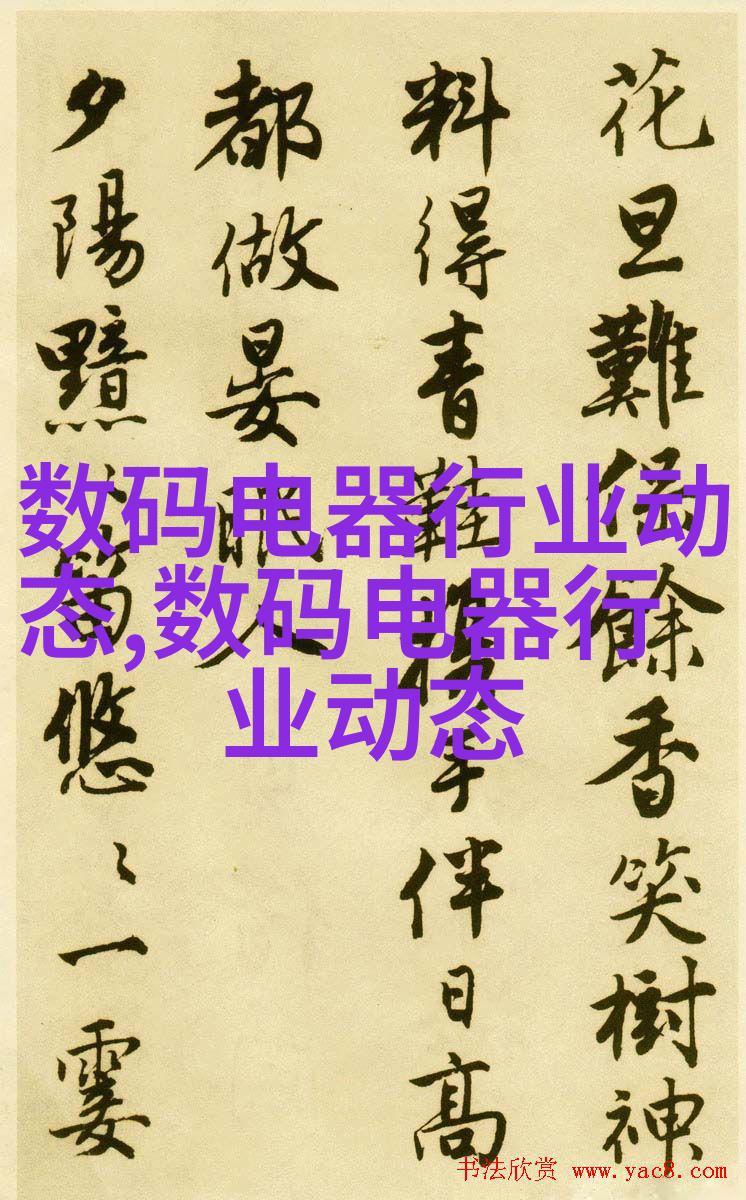 花旦難餘香笑樹神
料得青鞋攜手伴日高
都做晏眠人
夕陽黯笛悠〻一霎
数码电器行业动
态,数码电器行
业动态
书法欣赏 www.yac8.com